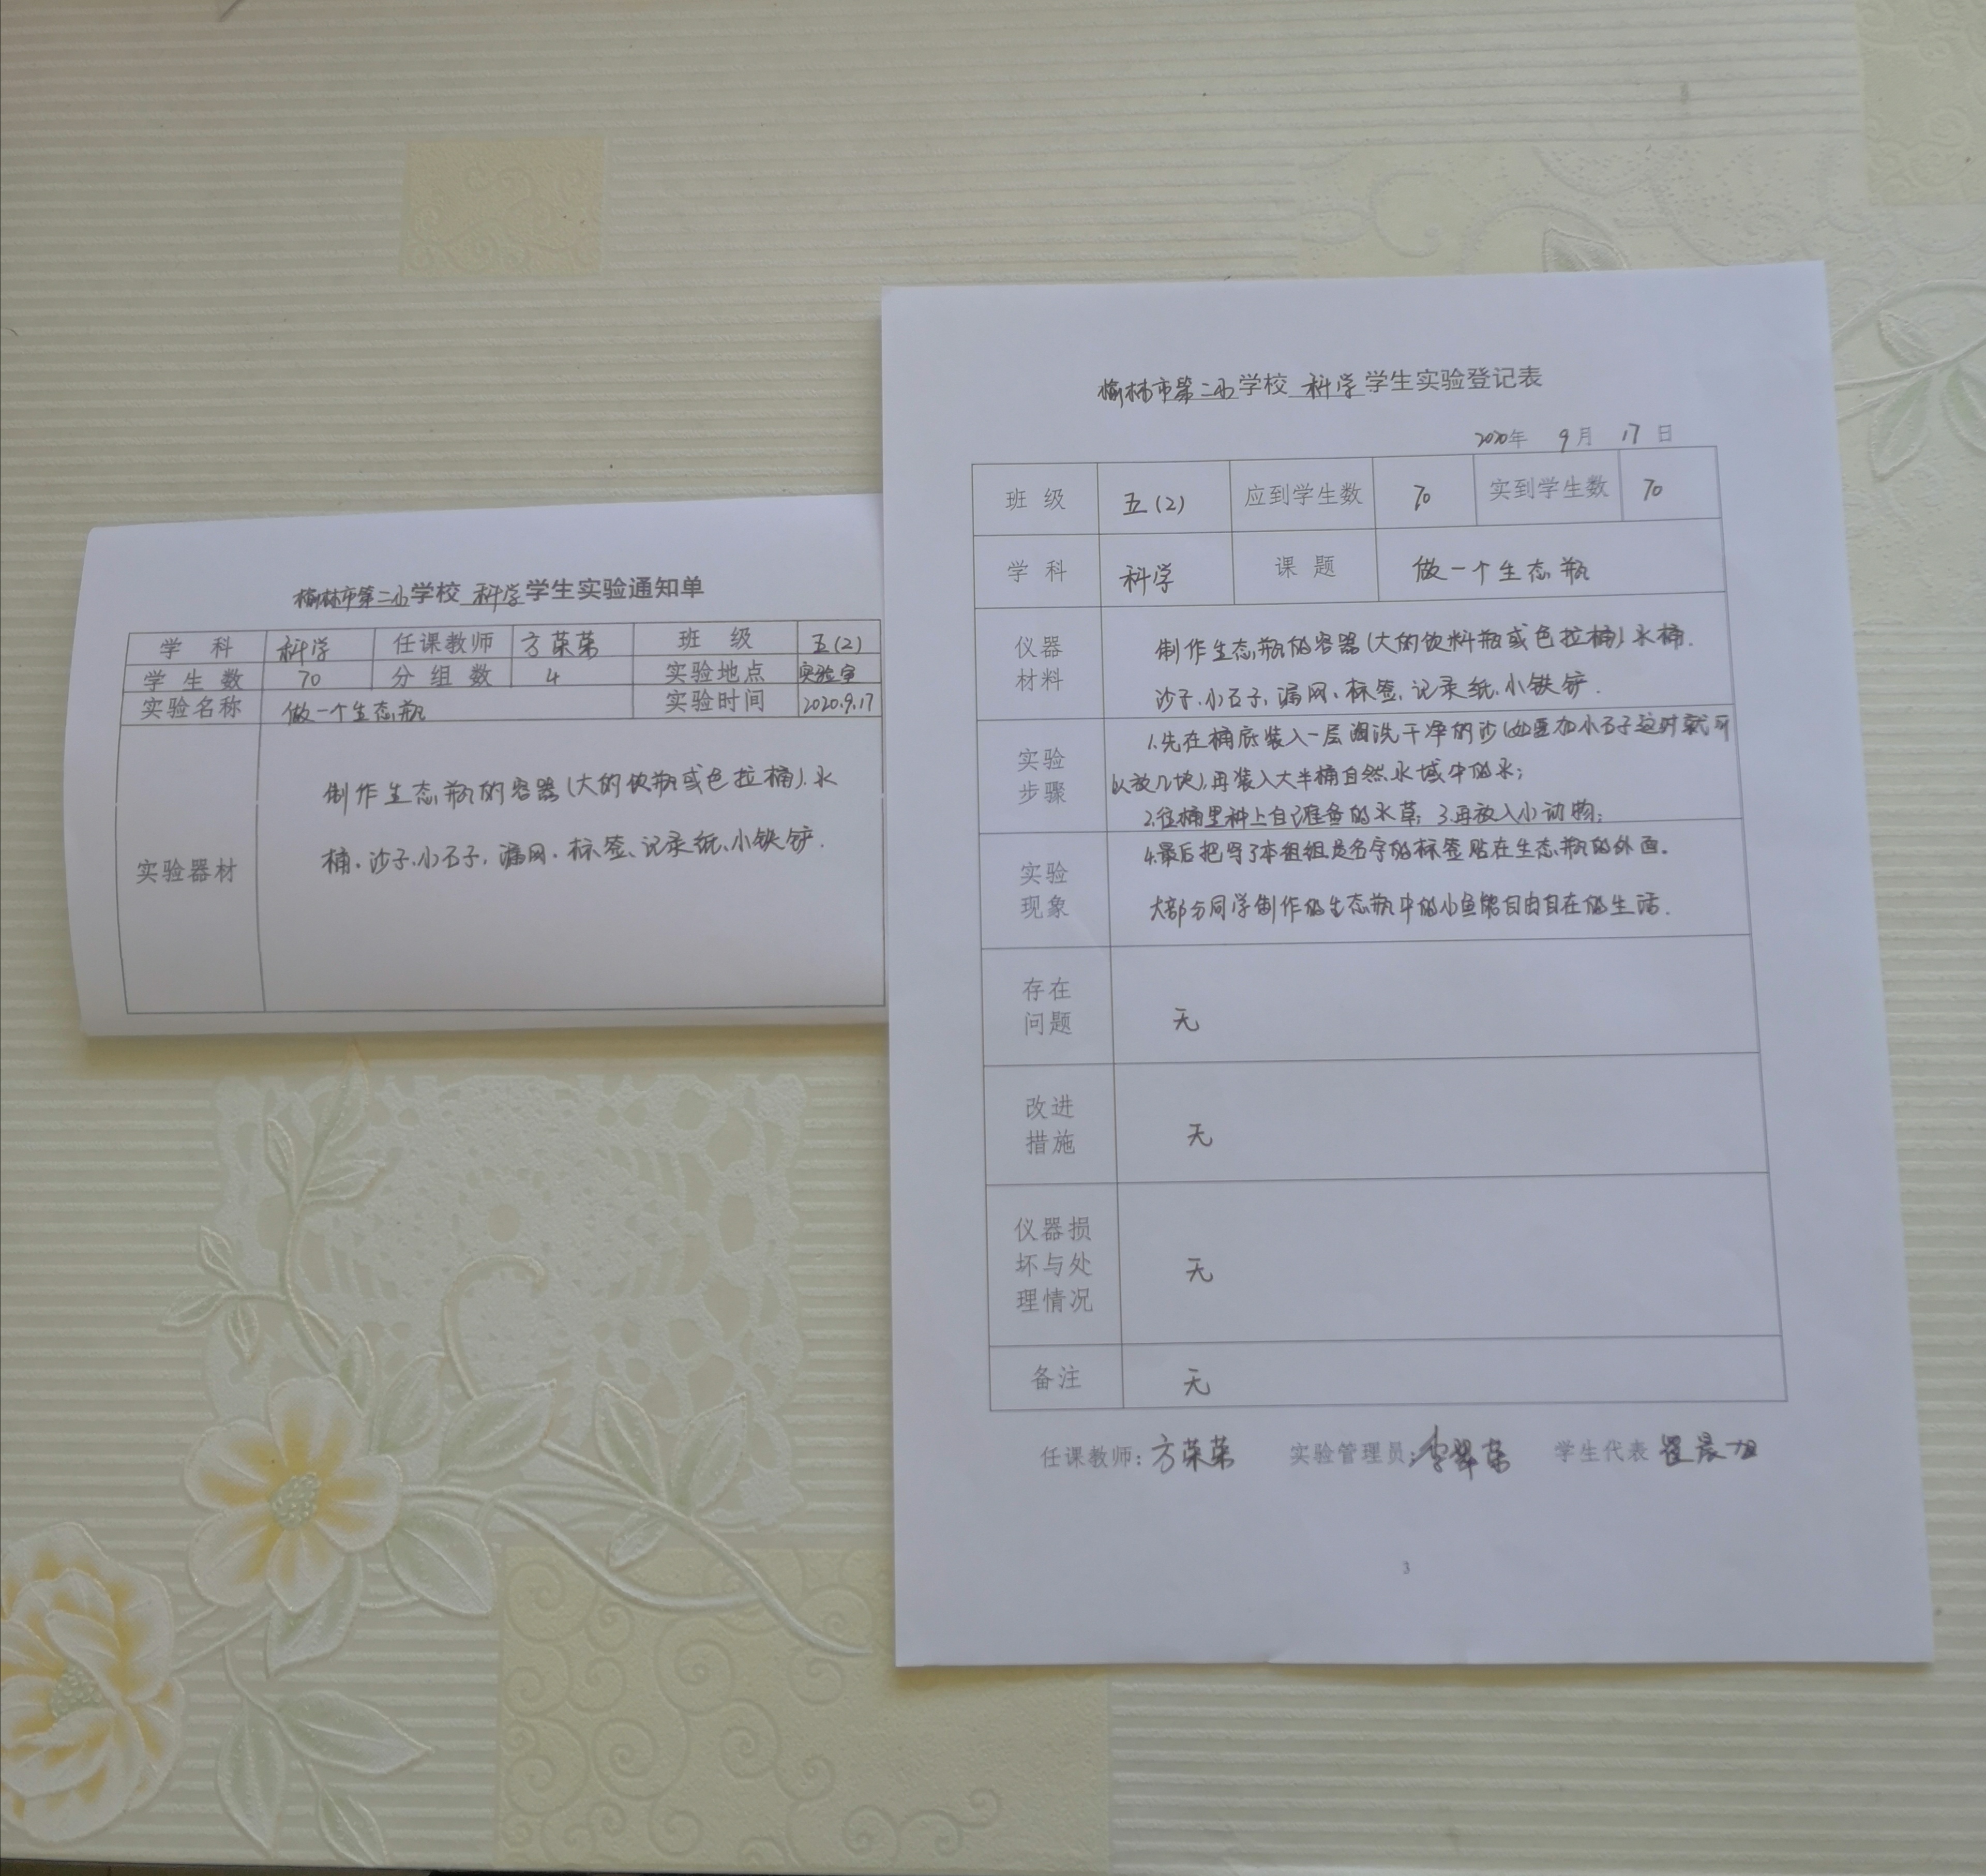 榆林市第二小学校 科学 学生实验通知单
学 科 科学 任课教师 方荣荣 班 级 五(2)
学生数 70 分组数 4 实验地点 实验室
实验名称 做一个生态瓶 实验时间 2020.9.17
实验器材
制作生态瓶的容器(大的饮瓶或色拉桶).水
桶.沙子.小石子,漏网.标签.记录纸.小铁铲.
榆林市第二小学校 科学 学生实验登记表
2020年 9月 17日
班 级 五(2) 应到学生数 70 实到学生数 70
学 科 科学 课 题 做一个生态瓶
仪器
材料
制作生态瓶的容器(大的饮料瓶或色拉桶)水桶.
沙子.小石子,漏网.标签.记录纸.小铁铲.
实验
步骤
1.先在桶底装入一层淘洗干净的沙(如要加小石子这时就可
以放几块),再装入大半桶自然水域中的水;
2.往桶里种上自准备的水草; 3.再放入小动物;
实验
现象
4.最后把写了本组组员名字的标签贴在生态瓶的外面.
大部分同学制作的生态瓶中的小鱼能自由自在的生活.
存在
问题
无
改进
措施
无
仪器损
坏与处
理情况
无
备注 无
任课教师:方荣荣 实验管理员: 学生代表
3